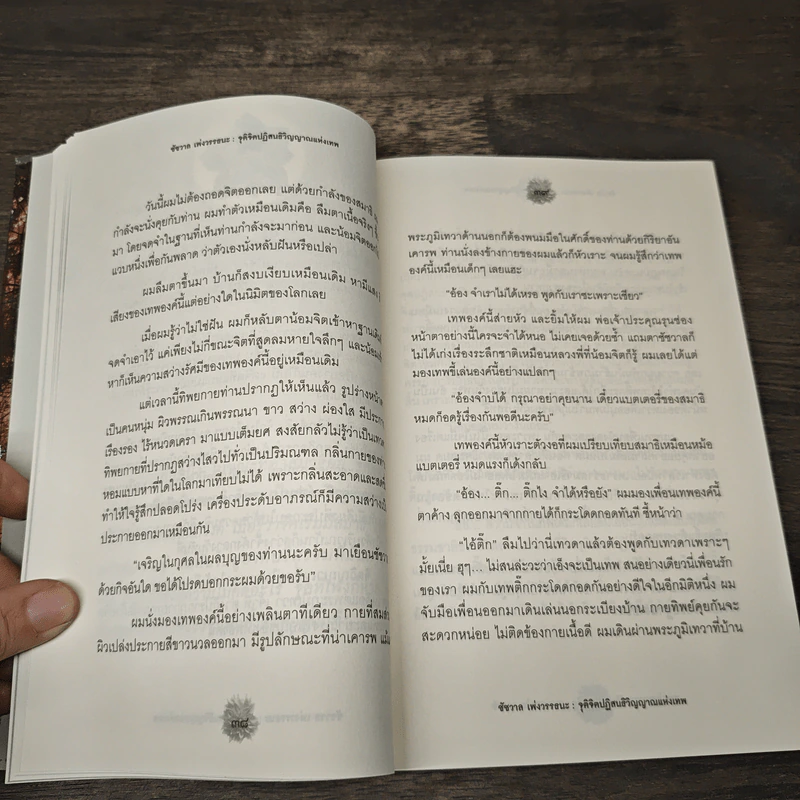 ชัชวาล เพ่งวรรธนะ : จุติจิตปฏิสนธิวิญญาณแห่งเทพ
วันนี้ผมไม่ต้องถอดจิตออกเลย แต่ด้วยกำลังของสมาธิ
กำลังจะนั่งคุยกับท่าน ผมทำตัวเหมือนเดิมคือ ลืมตาเนื้อจริงๆ
มา โดยจดจำในฐานที่เห็นท่านกำลังจะมาก่อน และน้อมจิตออก
แวบหนึ่งเพื่อกันพลาด ว่าตัวเองนั่งหลับฝันหรือเปล่า
ผมลืมตาขึ้นมา บ้านก็สงบเงียบเหมือนเดิม หามีแสง
เสียงของเทพองค์นี้แต่อย่างใดในนิมิตของโลกเลย
เมื่อผมรู้ว่าไม่ใช่ฝัน ผมก็หลับตาน้อมจิตเข้าหาฐานเดิม
จดจำเอาไว้ แค่เพียงไม่กี่ขณะจิตที่สูดลมหายใจลึกๆ และน้อม
หาก็เห็นความสว่างรัศมีของเทพองค์นี้อยู่เหมือนเดิม
แต่เวลานี้ทิพยกายท่านปรากฏให้เห็นแล้ว รูปร่างหน้าตา
เป็นคนหนุ่ม ผิวพรรณเกินพรรณนา ขาว สว่าง ผ่องใส มีประกาย
เรืองรอง ไร้หนวดเครา มาแบบเต็มยศ สงสัยกลัวไม่รู้ว่าเป็นเทพ
ทิพยกายที่ปรากฏสว่างไสวไปทั่วเป็นปริมณฑล กลิ่นกายของท่าน
หอมแบบหาที่ใดในโลกมาเทียบไม่ได้ เพราะกลิ่นสะอาดและสดชื่น
ทำให้ใจรู้สึกปลอดโปร่ง เครื่องประดับอาภรณ์ก็มีความสว่างเป็น
ประกายออกมาเหมือนกัน
“เจริญในกุศลในผลบุญของท่านนะครับ มาเยือนชัชวาล
ด้วยกิจอันใด ขอได้โปรดบอกกระผมด้วยขอรับ”
ผมนั่งมองเทพองค์นี้อย่างเพลินตาทีเดียว กายที่สมส่วน
ผิวเปล่งประกายสีขาวนวลออกมา มีรูปลักษณะที่น่าเคารพ
๓๘
๓๙
พระภูมิเทวาด้านนอกก็ต้องพนมมือในศักดิ์ของท่านด้วยกิริยาอัน
เคารพ ท่านนั่งลงข้างกายของผมแล้วก็หัวเราะ จนผมรู้สึกว่าเทพ
องค์นี้เหมือนเด็กๆ เลยแฮะ
“อ้อง จำเราไม่ได้เหรอ พูดกับเราซะเพราะเชียว”
เทพองค์นี้ส่ายหัว และยิ้มให้ผม พ่อเจ้าประคุณรุนช่อง
หน้าตาอย่างนี้ใครจะจำได้หนอ ไม่เคยเจอด้วยซ้ำ แถมตาชัชวาลก็
ไม่ได้เก่งเรื่องระลึกชาติเหมือนหลวงพี่ที่น้อมจิตก็รู้ ผมเลยได้แต่
มองเทพขี้เล่นองค์นี้อย่างแปลกๆ
“อ้องจำบ่ได้ กรุณาอย่าคุยนาน เดี๋ยวแบตเตอรี่ของสมาธิ
หมดก็อดรู้เรื่องกันพอดีนะครับ”
เทพองค์นี้หัวเราะตัวงอที่ผมเปรียบเทียบสมาธิเหมือนหม้อ
แบตเตอรี่ หมดแรงก็เด้งกลับ
“อ้อง... ติ๊ก... ติ๊กไง จำได้หรือยัง” ผมมองเพื่อนเทพองค์นี้
ตาค้าง ลุกออกมาจากกายได้ก็กระโดดกอดทันที ชี้หน้าว่า
“ไอ้ติ๊ก” ลืมไปว่านี่เทวดาแล้วต้องพูดกับเทวดาเพราะๆ
มั้ยเนี่ย ฮุๆ... ไม่สนล่ะวะว่าเอ็งจะเป็นเทพ สนอย่างเดียวนี่เพื่อนรัก
ของเรา ผมกับเทพติ๊กกระโดดกอดกันอย่างดีใจในอีกมิติหนึ่ง ผม
จับมือเพื่อนออกมาเดินเล่นนอกระเบียงบ้าน กายทิพย์คุยกันจะ
สะดวกหน่อย ไม่ติดข้องกายเนื้อดี ผมเดินผ่านพระภูมิเทวาที่บ้าน
ชัชวาล เพ่งวรรธนะ : จุติจิตปฏิสนธิวิญญาณแห่งเทพ